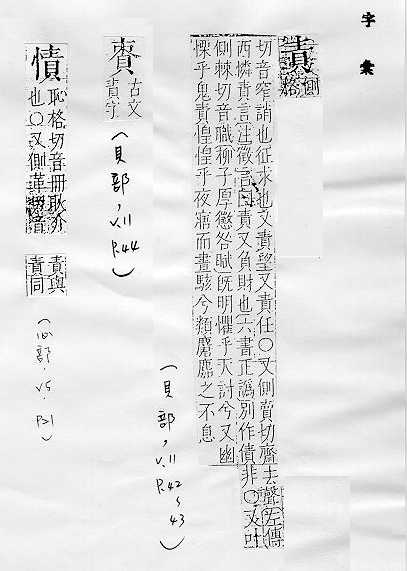 字彙
責 側格
切音窄誚也征求也又責望又責任〇又側賣切齋去聲左傳
西隣責言注徵 責又負財也六書正譌別作債非〇又叶
側棘切音職柳子厚懲咎賦旣明懼乎天討兮又幽
慄乎鬼責惶惶乎夜寤而晝駭兮類麏麚之不息
(貝部, v.11 P.42~43)
古文
責字
(貝部, v.11 P.44)
恥格切音冊耿介
也〇又側革切音
責與
責同
(心部, v.5 P.31)